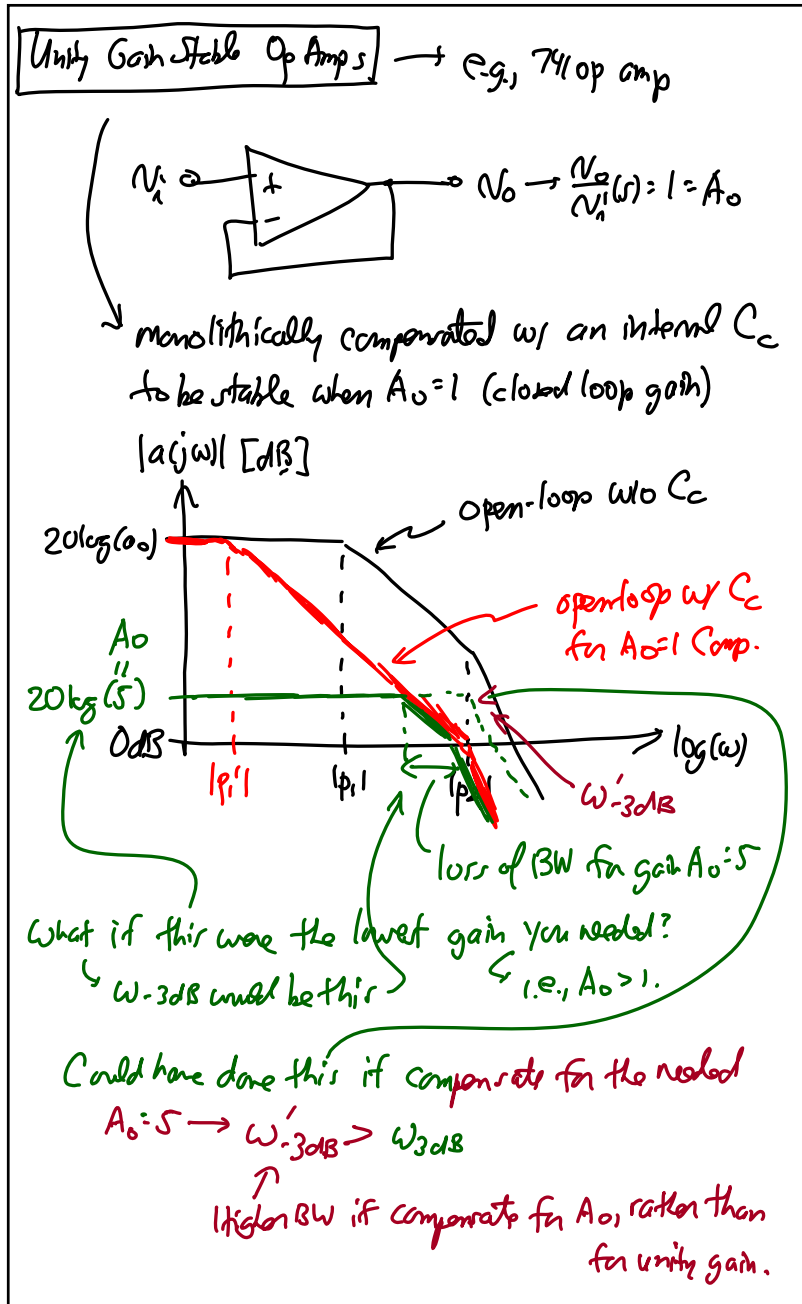 Unity Gain Stable Op Amps → e.g., 741 op amp
Vi + - Vo → Vo/Vi(s) = 1 = A₀
monolithically compensated w/ an internal Cc
to be stable when A₀=1 (closed loop gain)
|a(jω)| [dB]
open-loop w/o Cc
20log(a₀)
open loop w/ Cc
for A₀=1 Comp.
A₀
=
20log(5)
0dB
log(ω)
|p₁'| |p₁| |p₂|
ω'-3dB
loss of BW for gain A₀=5
What if this were the lowest gain you needed?
ω-3dB would be this
i.e., A₀ > 1.
Could have done this if compensate for the needed
A₀=5 → ω'-3dB > ω3dB
Higher BW if compensate for A₀, rather than
for unity gain.